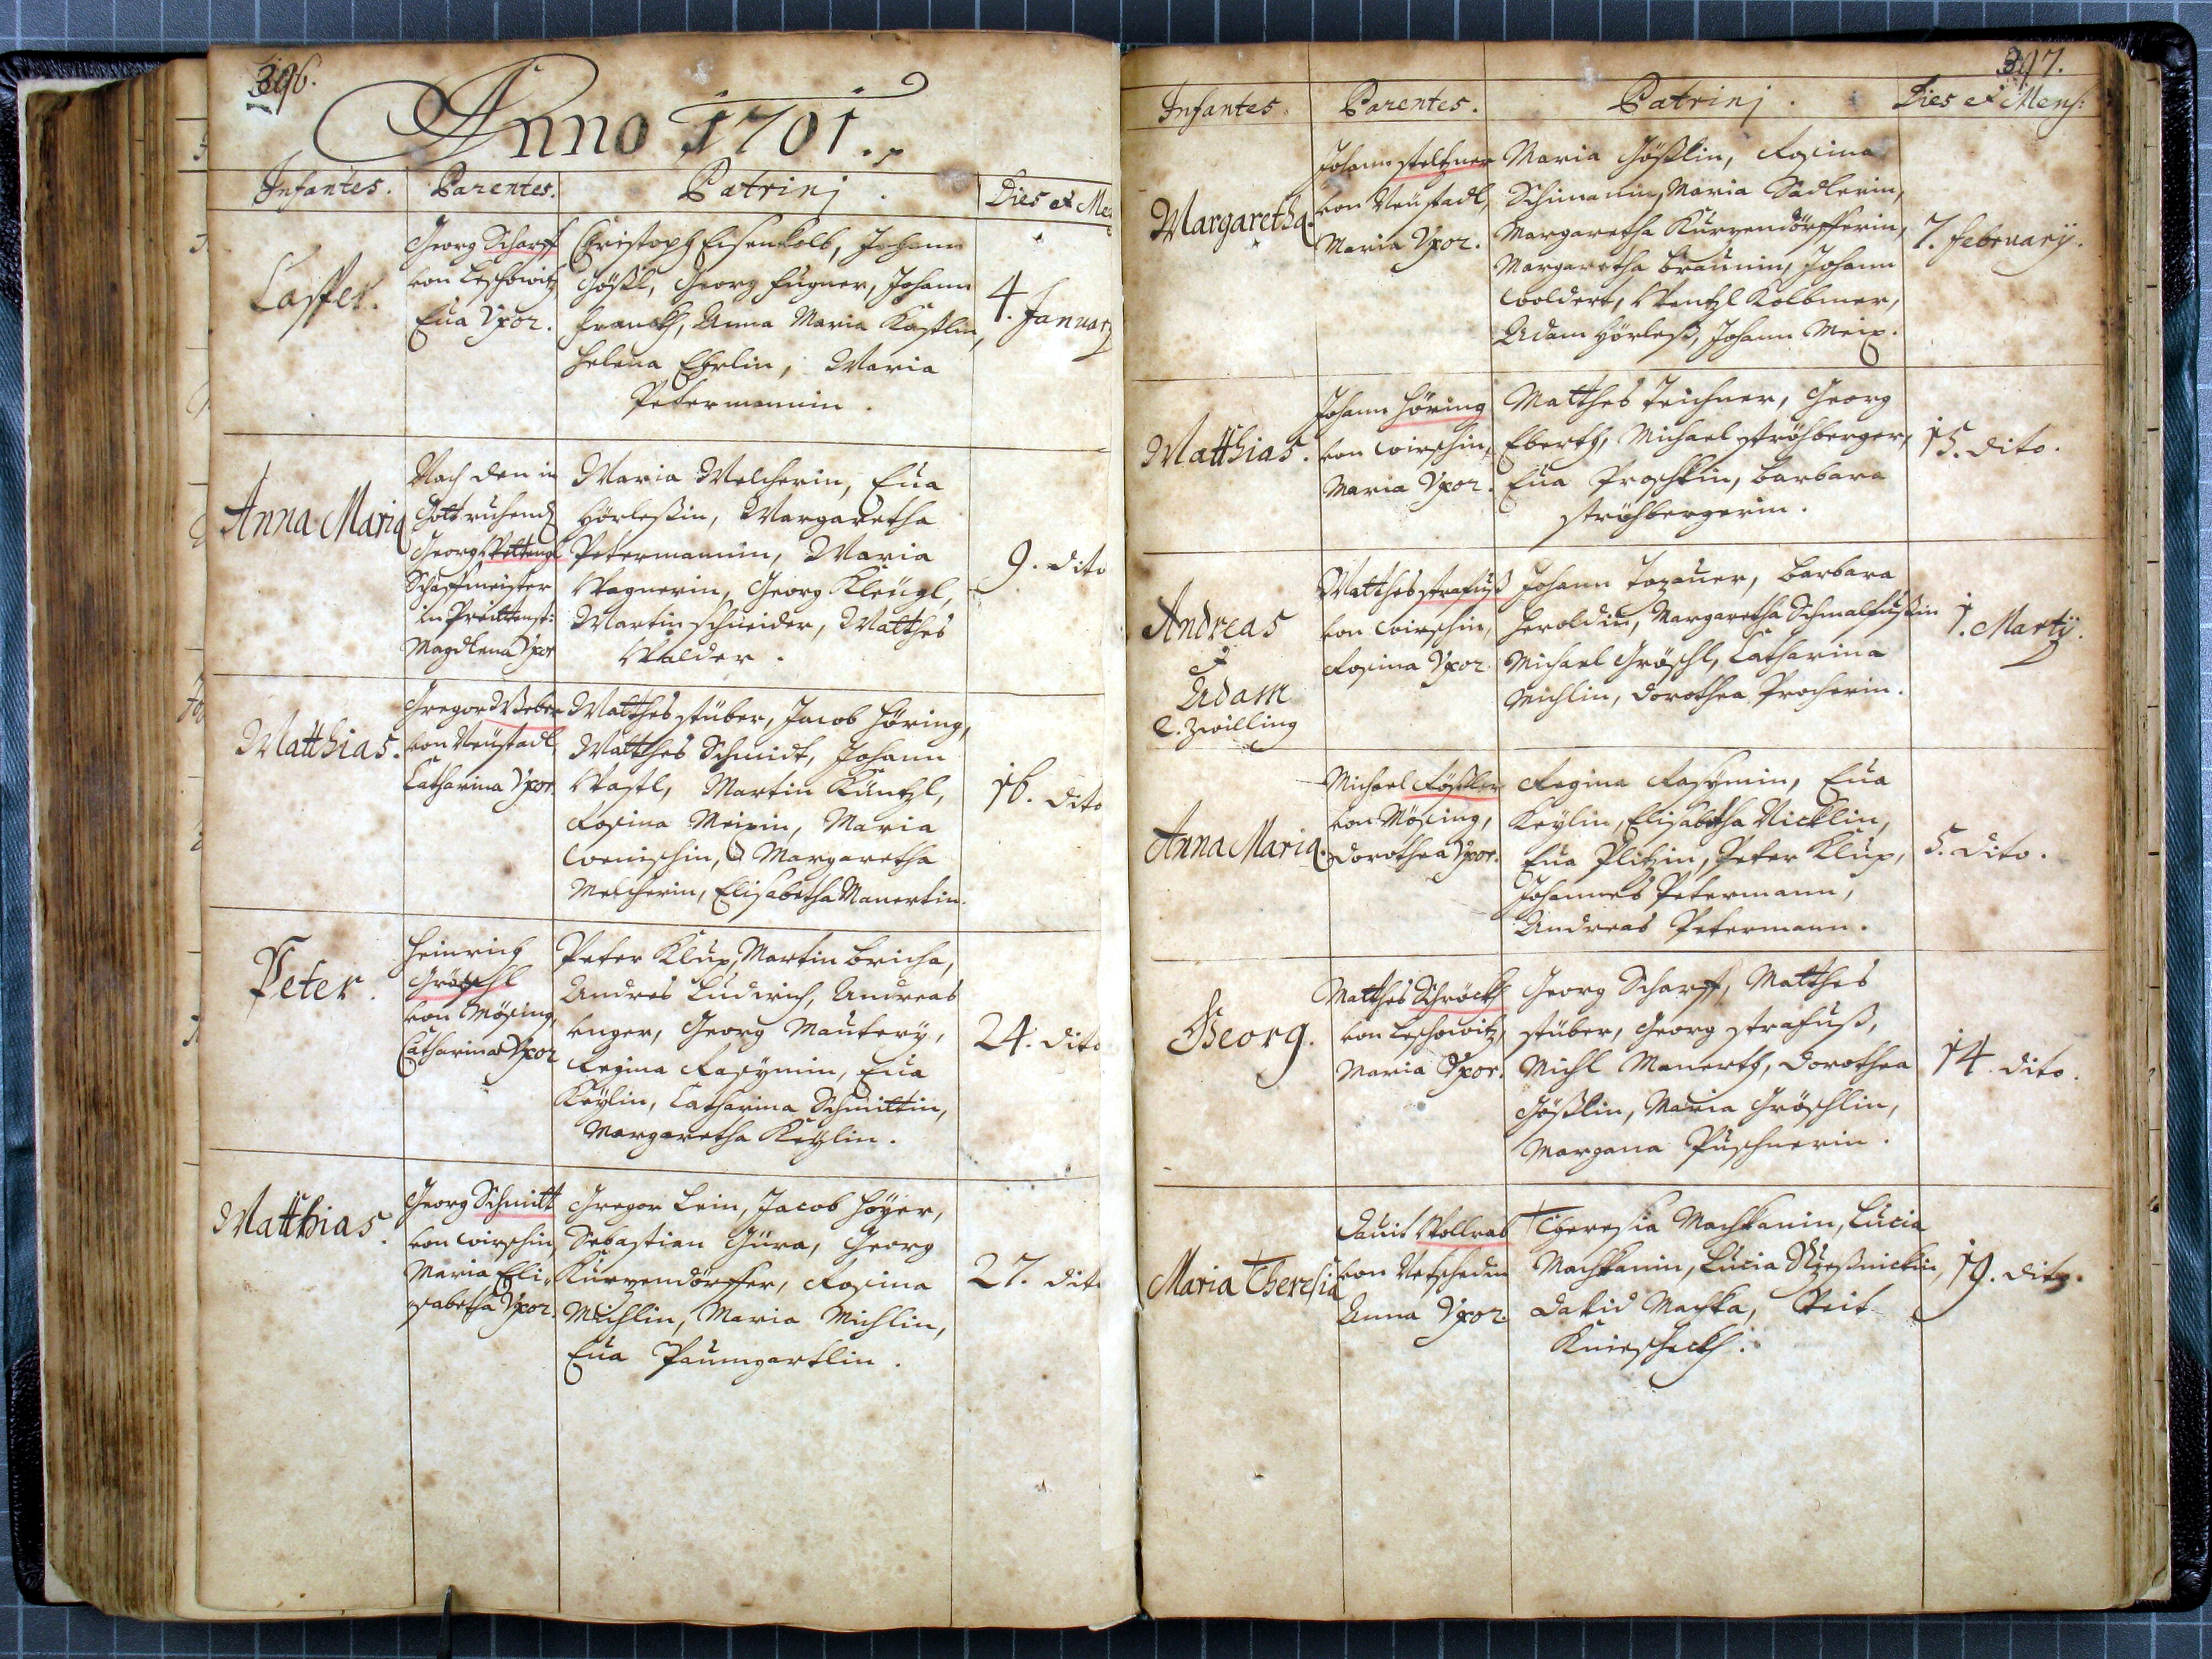 396.
Anno 1701.
Infantes. Parentes. Patrinj. Dies et Me
Casper.
Georg Scharff
von Leschowitz
Eua Vxor.
Christoph Eisenkolb, Johann
Gößl, Georg Fugner, Johann
Franckh, Anna Maria Kastlin,
Helena Eherlin, Maria
Petermannin.
4. Januarÿ
Anna Maria
Nach den in
Gott ruhend
Georg
Schaffmeister
in
Magdlena Vxor
Maria Melcherin, Eua
Hörleßin, Margaretha
Petermannin, Maria
Wagnerin, Georg Kleügl,
Martin Schneider, Matthes
Walder.
9. dito
Matthias.
Gregor Weber
von Neüstadl,
Catharina Vxor.
Matthes Stüber, Jacob Höring,
Matthes Schmidt, Johann
Wastl, Martin Küntzl,
Rosina Meixin, Maria
Wenischin, Margaretha
Melcherin, Elisabetha Manertin.
16. dito
Peter.
Heinrich
Gröschl
von Mösing,
Catharina Vxor
Peter Klup, Martin Bricha,
Andres Ludwich, Andreas
Unger, Georg Mautery,
Regina Rasymin, Eua
Keÿlin, Catharina Schmittin,
Margaretha Keÿlin.
24. dito
Matthias.
Georg Schmitt
von Wirschin,
Maria Eli-
sabetha Vxor.
Gregor Lein, Jacob Höÿer,
Sebastian Güra, Georg
Kurzendörffer, Rosina
Michlin, Maria Michlin,
Eua Paumgartlin.
27. dito
397.
Infantes. Parentes. Patrinj. Dies et Mens:
Margaretha.
Johann Steltzner
von Neüstadl,
Maria Vxor.
Maria Gößlin, Rosina
Schimanin, Maria Sadlerin,
Margaretha Kurzendörfferin,
Margaretha Braunin, Johann
Woldert, Wentzl Kolbmer,
Adam Hörleß, Johann Meix.
7. Februarÿ.
Matthias.
Johann Höring
von Wirschin,
Maria Vxor.
Matthes Teichner, Georg
Eberth, Michael Ströhberger,
Eua Proschkin, Barbara
Ströhbergerin.
15. dito.
Andreas
et
Adam
2. Zwilling
Matthes Strafuß
von Wirschin,
Rosina Vxor.
Johann Tozauer, Barbara
Heroldin, Margaretha Schmalfußin
Michael Gröschl, Catharina
Michlin, Dorothea Procherin.
1. Martÿ.
Anna Maria.
Michael Rößler
von Mösing,
Dorothea Vxor.
Regina Rasymin, Eua
Keÿlin, Elisabetha Nicklin,
Eua Plitzin, Peter Klup,
Johannes Petermann,
Andreas Petermann.
5. dito.
Georg.
Matthes Schröckh
von Leschowitz,
Maria Vxor.
Georg Scharff, Matthes
Stüber, Georg Strafuß,
Michl Manerth, Dorothea
Gößlin, Maria Gröschlin,
Margana Puschnerin.
14. dito.
Maria Theresia
Dauit Wollrab
von Netschedin
Anna Vxor.
Theresia Machkanin, Lucia
Machkanin, Lucia
David Machka, Veit
Knieschekh.
19. dito.